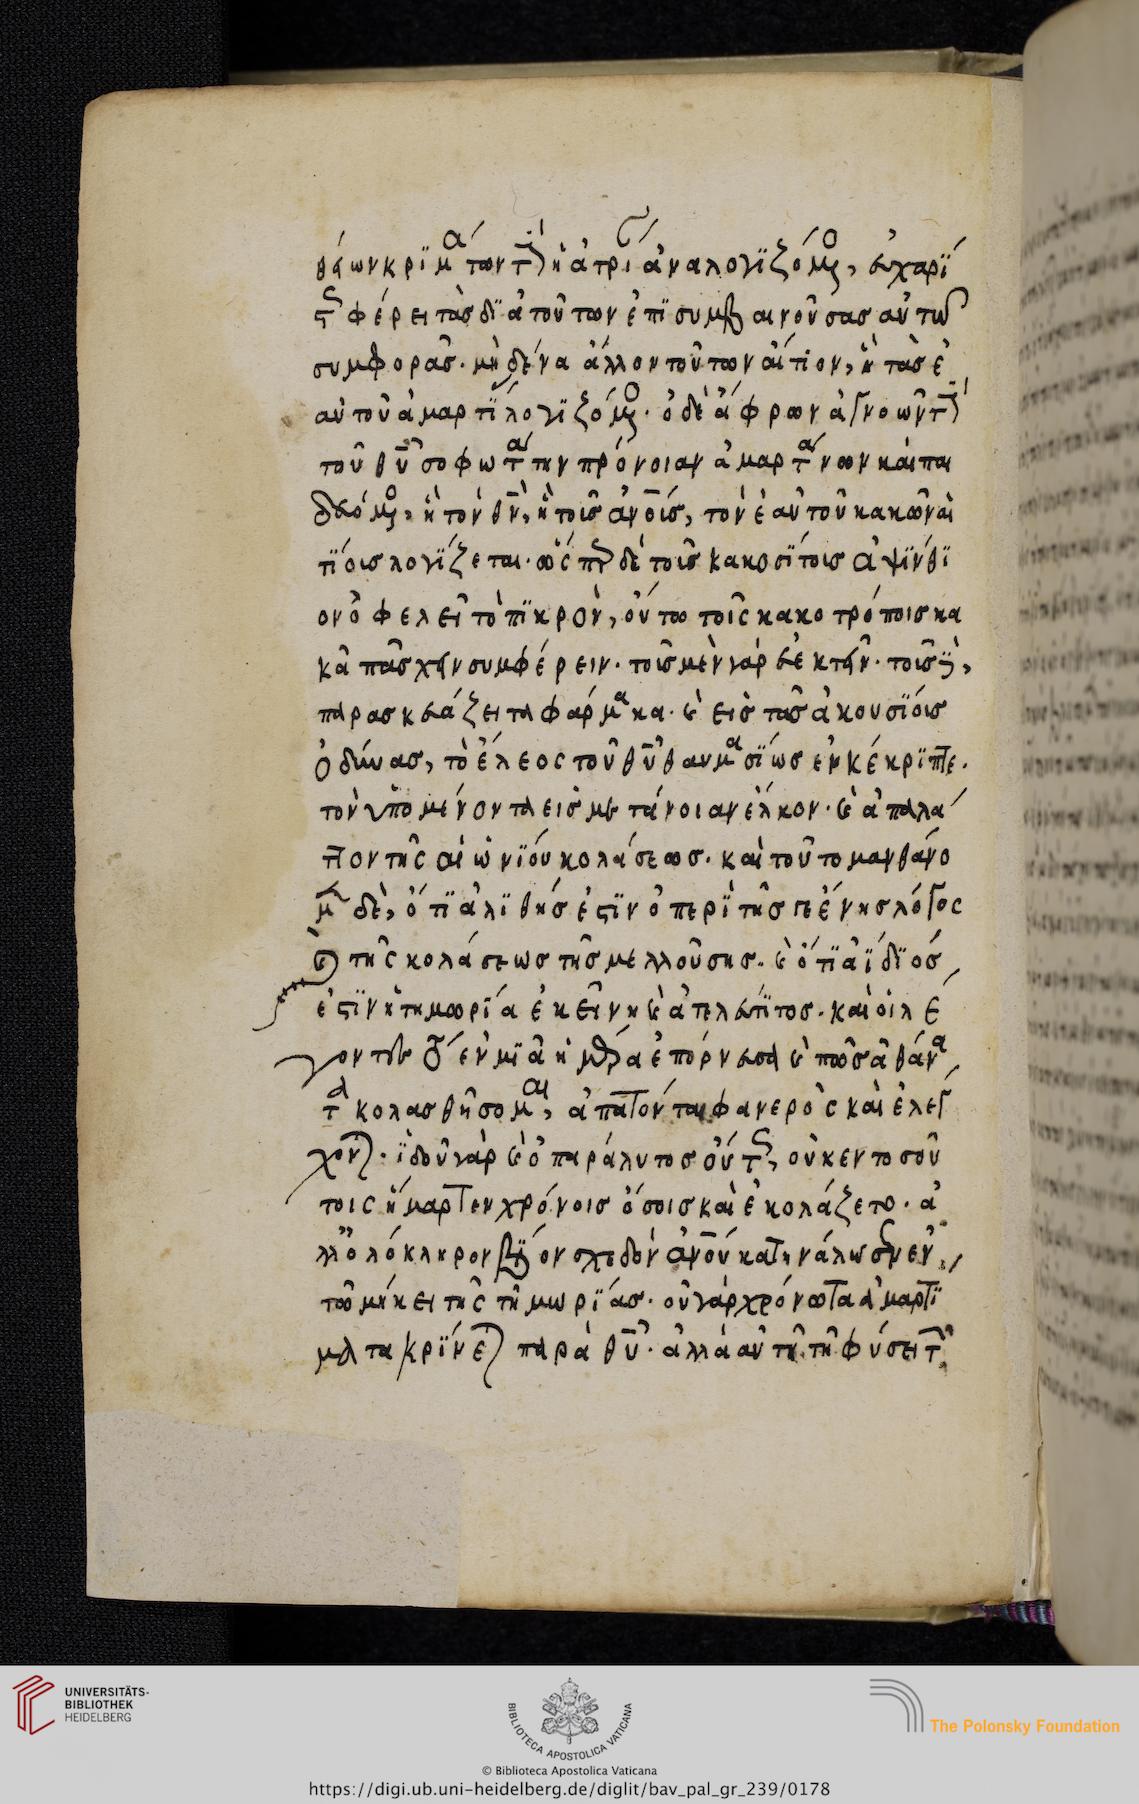 θείων κριμάτων τ ἰατρι ἀναλογιζόμ, εὐχαρί
ς φέρει τὰς διὰ τούτων ἐπισυμβαινούσας αὐτῶ
συμφορὰς. μὴδένα ἄλλον τούτων αἴτιον, ἢ τὰς ἑ
αὐτοῦ ἁμαρτί λογιζόμ. ὁ δὲ ἄφρων ἀγνοῶν τ
τοῦ θῦ σοφωτάτην πρόνοιαν ἁμαρτάνων καὶ παι
δευόμ, ἢ τὸν θν, ἢ τοῖς ἀνοις, τὸν ἑαὐτοῦ κακῶν αἰ
τίοις λογίζεται. ὥσπ δὲ τοῖς κακοσίτοις ἀψίνθι
ον ὀφελεῖ τὸ πικρὸν, οὕτω τοῖς κακοτρόποις κα
κὰ πάσχειν συμφέρειν. τοῖς μὲν γὰρ εὐεκτεῖν. τοῖς
παρασκευάζει τὰ φάρμακα. καὶ εἰς τὰς ἀκουσίοις
ὀδύνας, τὸ ἔλεος τοῦ θῦ θαυμασίως ἐνκέκριπτε.
τὸν ὑπομένοντα εἰς μετάνοιαν ἕλκον. καὶ ἀπαλά
ττον τῆς αἰωνίου κολάσεως. καὶ τοῦτο μανθάνο
μ δὲ, ὅτι ἀλιθής ἐστιν ὁ περὶ τῆς γεένης λόγος
καὶ τῆς κολάσεως τῆς μελλούσης. καὶ ὅτι ἀΐδιος
ἐστιν ἡ τημωρία ἐκείνη καὶ ἀτελεύτιτος. καὶ οἱ λέ
γοντες ὅτι ἐν μιᾶ ἡμέρα ἐπόρνευσα καὶ πῶς ἀθάνα
τα κολασθήσομαι, ἀπατὸνται φανερὸς καὶ ἐλεγ
χον. ἰδοῦ γὰρ καὶ ὁ παράλυτος οὕτς, οὐκ εν τοσού
τοις ἥμαρτεν χρόνοις ὅσοις καὶ ἐκολάζετο. ἀ
λλ ὁλόκληρον βίον σχεδὸν ἀνοῦ κατηνάλωσεν ἐν
τῶ μήκει τῆς τημωρίας. οὐ γὰρ χρόνω τὰ ἁμαρτί
ματα κρίνε παρὰ θῦ. ἀλλὰ αὐτῆ τῆ φύσει τ
UNIVERSITÄTS-
BIBLIOTHEK
HEIDELBERG
BIBLIOTECA APOSTOLICA VATICANA
The Polonsky Foundation
© Biblioteca Apostolica Vaticana
https://digi.ub.uni-heidelberg.de/diglit/bav_pal_gr_239/0178